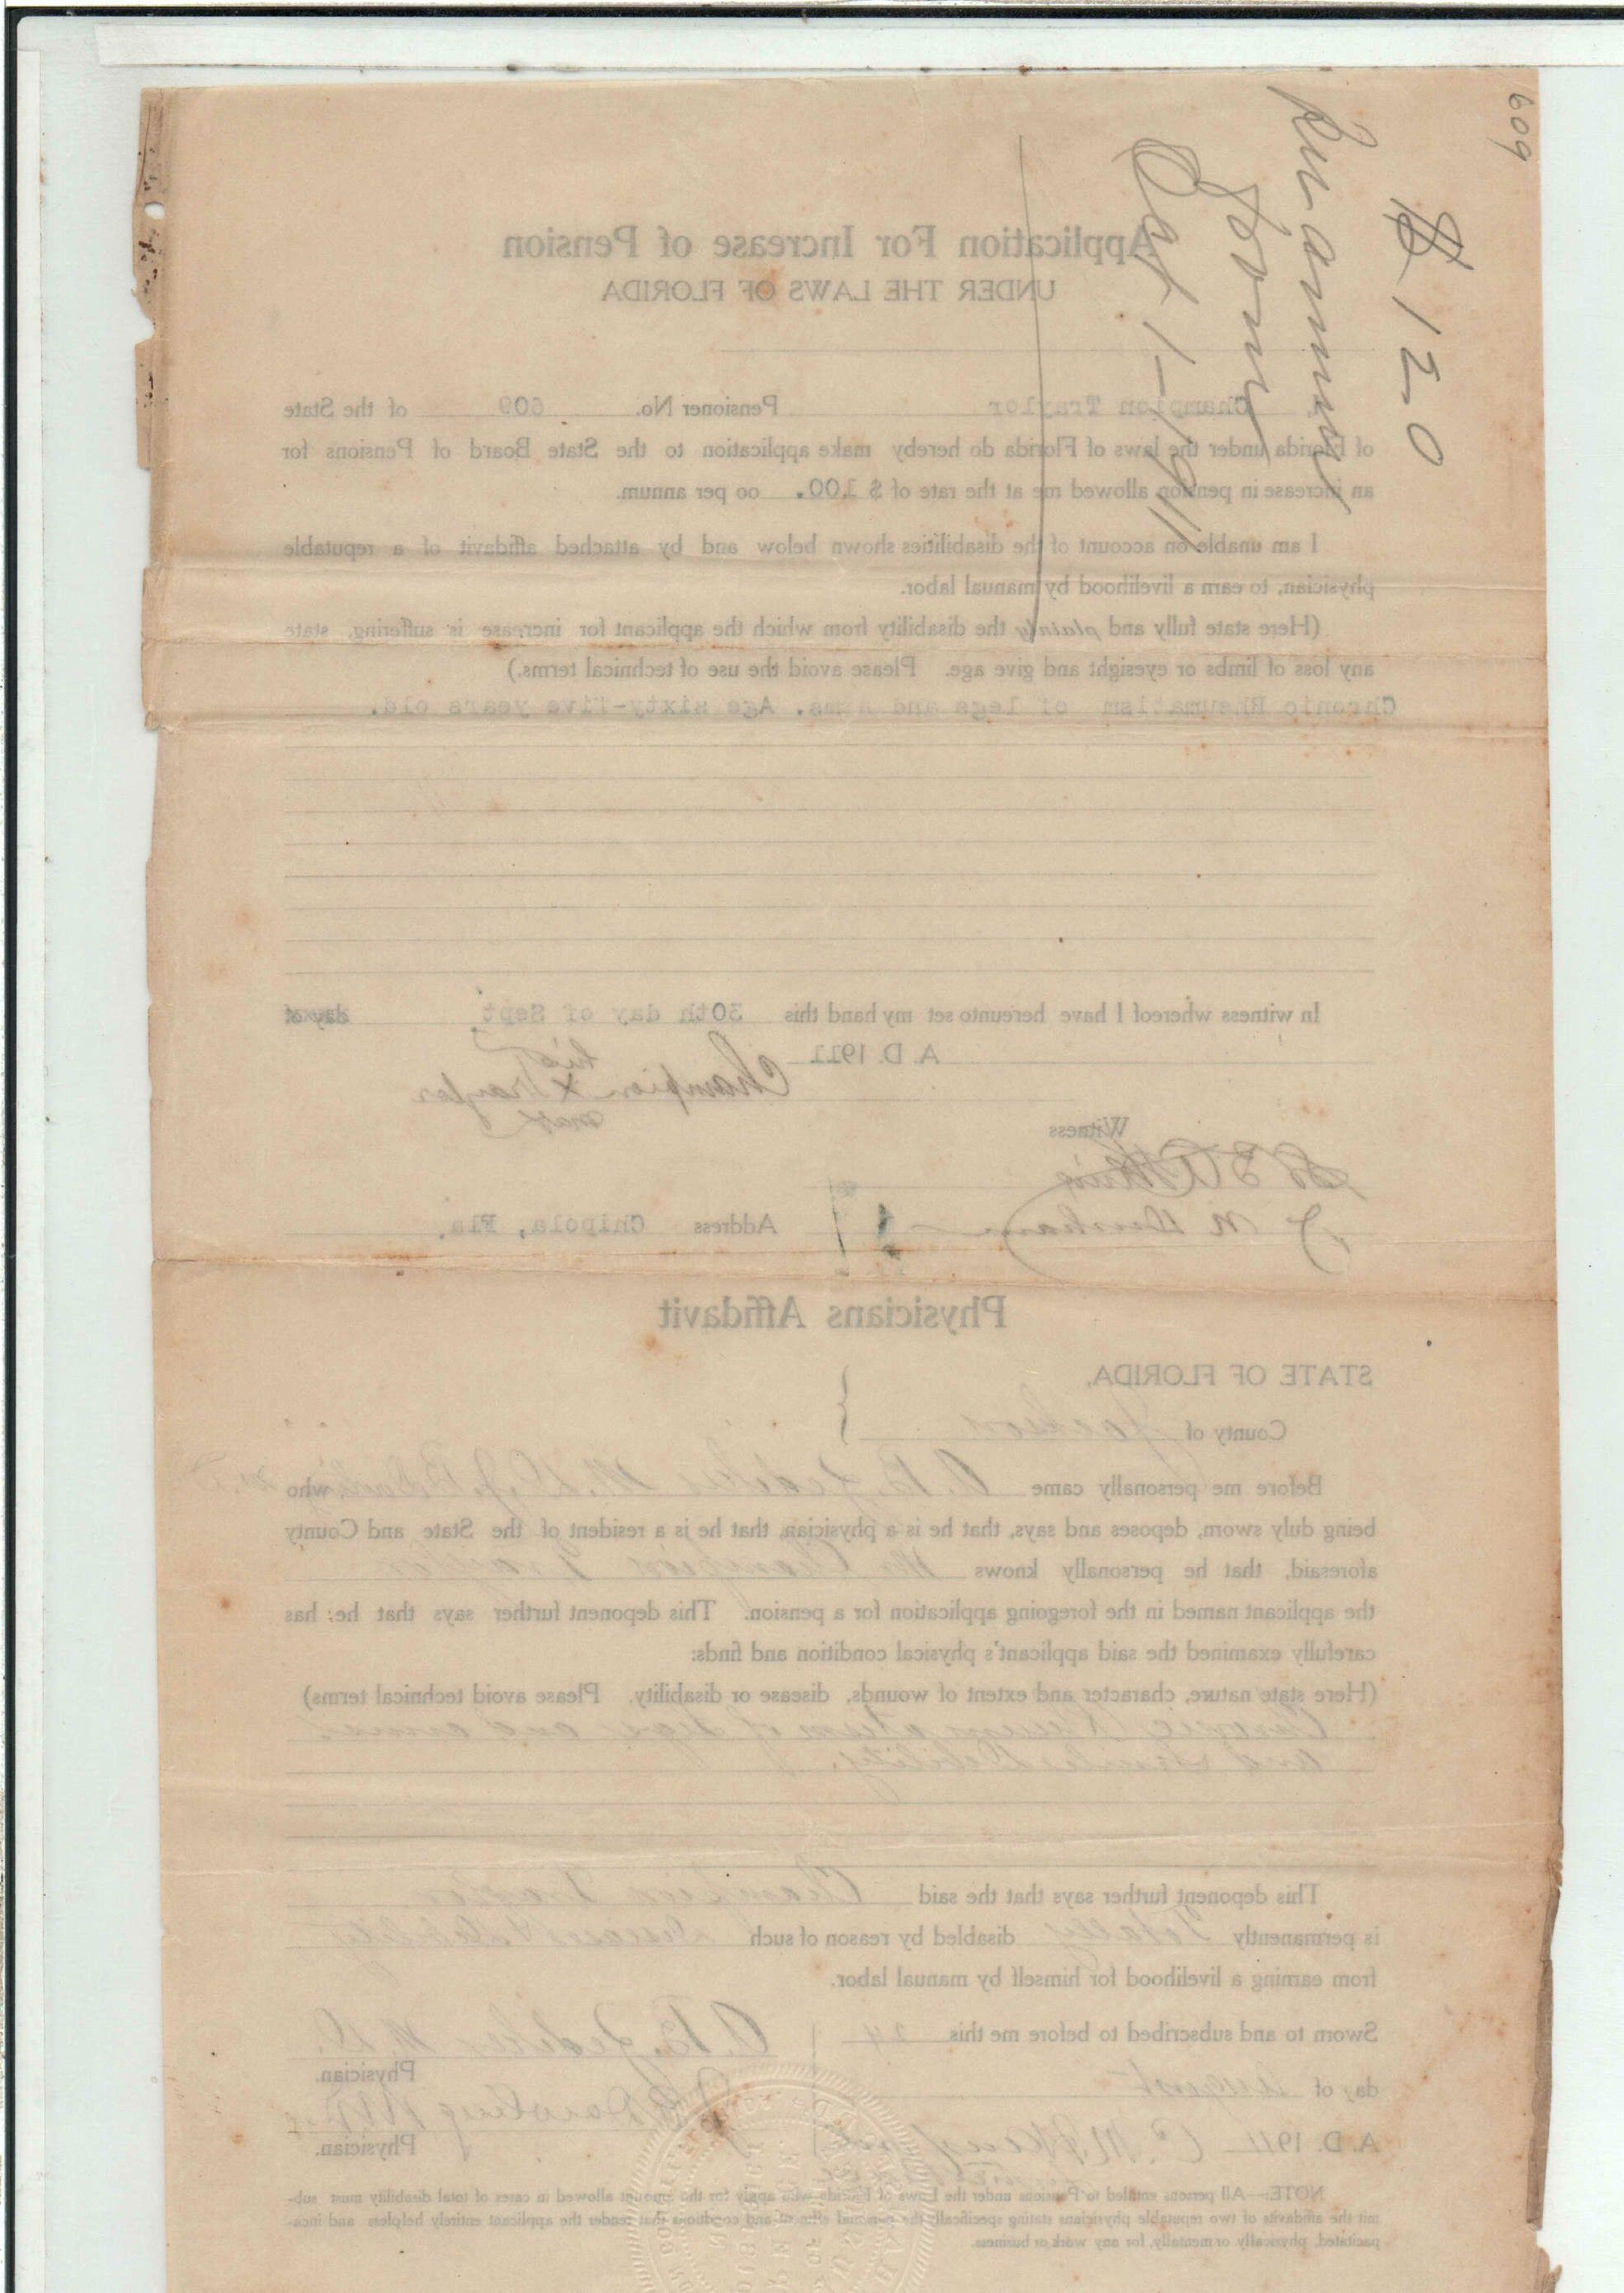 609
$120
Per annum
from
Oct 1-1911
Application For Increase of Pension
UNDER THE LAWS OF FLORIDA
Champion Traylor Pensioner No. 609 of the State
of Florida under the laws of Florida do hereby make application to the State Board of Pensions for
an increase in pension allowed me at the rate of $ 100. oo per annum.
I am unable on account of the disabilities shown below and by attached affidavit of a reputable
physician, to earn a livelihood by manual labor.
(Here state fully and plainly the disability from which the applicant for increase is suffering, state
any loss of limbs or eyesight and give age. Please avoid the use of technical terms.)
Chronic Rheumatism of legs and Arms. Age sixty-five years old.
In witness whereof I have hereunto set my hand this 30th day of Sept day of
A. D. 1911
his
Champion X Traylor
mark
Witness
J M
Address Chipola, Fla.
Physicians Affidavit
STATE OF FLORIDA,
County of Jackson
Before me personally came who
being duly sworn, deposes and says, that he is a physician, that he is a resident of the State and County
aforesaid, that he personally knows Mr Champion Traylor
the applicant named in the foregoing application for a pension. This deponent further says that he has
carefully examined the said applicant's physical condition and finds:
(Here state nature, character and extent of wounds, disease or disability. Please avoid technical terms)
Chronic Rheumatism of legs and armes
and senile Debility.
This deponent further says that the said Champion Traylor
is permanently Totally disabled by reason of such Disease & debility
from earning a livelihood for himself by manual labor.
Sworn to and subscribed to before me this 24
M. D.
Physician.
day of August
Dowling
A. D. 1911
Physician.
NOTE—All persons entitled to Pensions under the Laws of Florida who apply for the amount allowed in cases of total disability must sub-
mit the affidavits of two reputable physicians stating specifically the personal ailment and conditions that render the applicant entirely helpless and inca-
pacitated, physically or mentally, for any work or business.